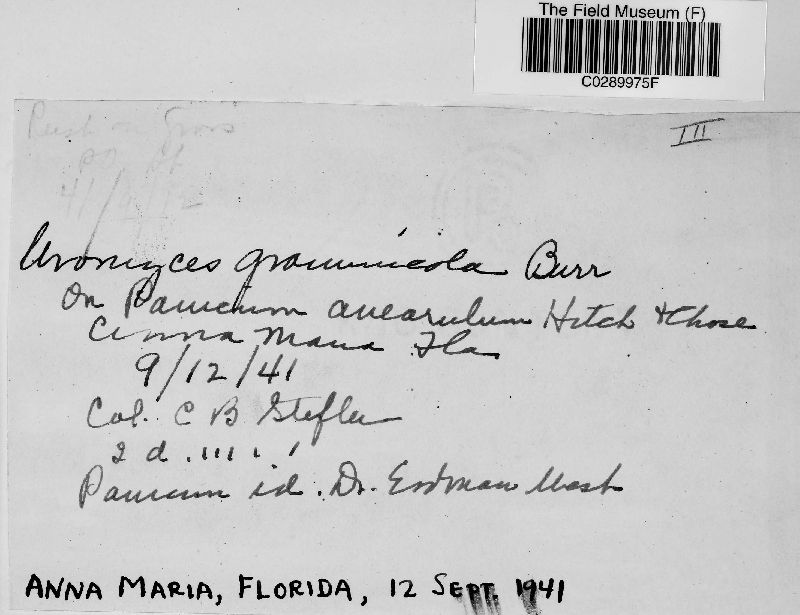 The Field Museum (F)
C0289975F
III
Rust on Grass
41/9/12
Uromyces graminicola Burr
On Panicum anearulum Hitch & Chase
Anna Maria Fla
9/12/41
Col. C B Stefler
2 d. III
Panicum id. Dr. Erdman West
ANNA MARIA, FLORIDA, 12 SEPT. 1941